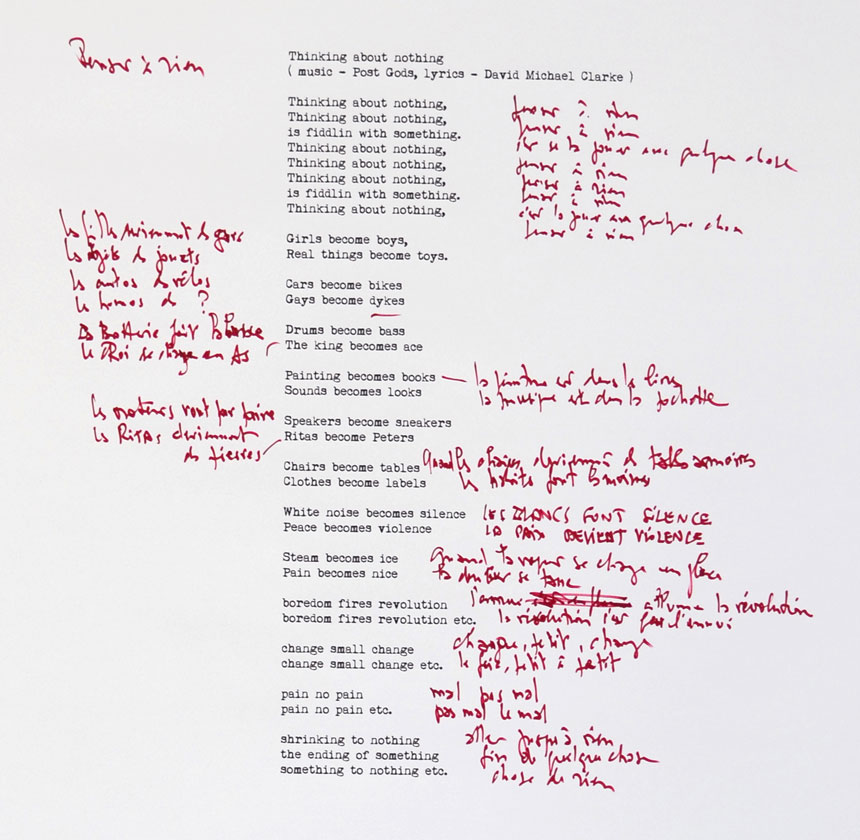 Penser à rien
Thinking about nothing
( music - Post Gods, lyrics - David Michael Clarke )
Thinking about nothing, penser à rien
Thinking about nothing, penser à rien
is fiddlin with something. c'est se la jouer avec quelque chose
Thinking about nothing, penser à rien
Thinking about nothing, penser à rien
Thinking about nothing, penser à rien
is fiddlin with something. c'est la jouer avec quelque chose
Thinking about nothing, penser à rien
les filles deviennent des gars
Girls become boys,
les objets des jouets
Real things become toys.
les autos des vélos
Cars become bikes
les homos des ?
Gays become dykes
La Batterie fait la basse
Drums become bass
le Roi se change en As
The king becomes ace
Painting becomes books la peinture est dans le livre
Sounds becomes looks la musique est dans la pochette
les moteurs vont par paire
Speakers become sneakers
les Ritas deviennent
des pierres
Ritas become Peters
Chairs become tables Quand les chaises deviennent des armoires
Clothes become labels les habits font
White noise becomes silence LES BLANCS FONT SILENCE
Peace becomes violence LA PAIX DEVIENT VIOLENCE
Steam becomes ice Quand la vapeur se change en glace
Pain becomes nice la douleur se tanne
boredom fires revolution allume la révolution
boredom fires revolution etc. la révolution c'est fort l'ennui
change small change change, petit, change
change small change etc. le fais, petit à petit
pain no pain mal pas mal
pain no pain etc. pas mal le mal
shrinking to nothing aller jusqu'à rien
the ending of something fin de quelque chose
something to nothing etc. chose de rien